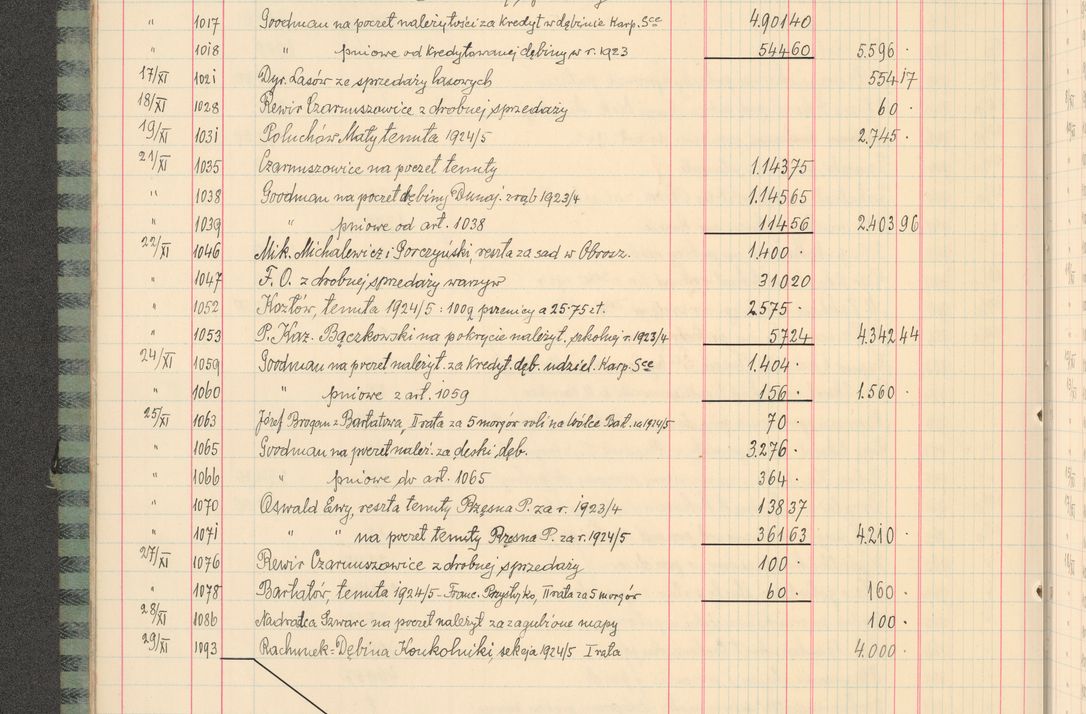 " 1017 Goodman na poczet należytości za kredyt w dębinie Karp. Sce 4.901 40
" 1018 " pniowe od kredytowanej dębiny w r. 1923 544 60 5.596 ·
17/XI 1021 Dyr. Lasów ze sprzedaży lasowych 554 17
18/XI 1028 Rewir Czarnuszowice z drobnej sprzedaży 60 ·
19/XI 1031 Poluchów Mały tenuta 1924/5 2.745 ·
21/XI 1035 Czarnuszowice na poczet tenuty 1.143 75
" 1038 Goodman na poczet dębiny Dunaj. zrąb 1923/4 1.145 65
" 1039 " pniowe od art. 1038 114 56 2.403 96
22/XI 1046 Mik. Michalewicz i Gorczyński, reszta za sad w Obrosz. 1.400 ·
" 1047 F. O. z drobnej sprzedaży warzyw 310 20
" 1052 Kozłów, tenuta 1924/5 : 100q pszenicy a 25·75 zł. 2.575 ·
" 1053 P. Kaz. Bączkowski na pokrycie należyt. szkolnej r. 1923/4 57 24 4.342 44
24/XI 1059 Goodman na poczet należyt. za kredyt. dęb. udziel. Karp. Sce 1.404 ·
" 1060 " pniowe z art. 1059 156 · 1.560 ·
25/XI 1063 Józef Brogan z Barłatowa, II rata za 5 morgów roli na Wólce Bał. za 1924/5 70 ·
" 1065 Goodman na poczet należ. za deski dęb. 3.276 ·
" 1066 " pniowe do art. 1065 364 ·
" 1070 Oswald Ewy, reszta tenuty Rzęsna P. za r. 1923/4 138 37
" 1071 " " na poczet tenuty Rzęsna P. za r. 1924/5 361 63 4.210 ·
27/XI 1076 Rewir Czarnuszowice z drobnej sprzedaży 100 ·
" 1078 Barłatów, tenuta 1924/5 - Franc. II rata za 5 morgów 60 · 160 ·
28/XI 1086 Nadradca Szwarc na poczet należyt za zagubione mapy 100 ·
29/XI 1093 Rachunek: Dębina Konkolniki, sekcja 1924/5 I rata 4.000 ·